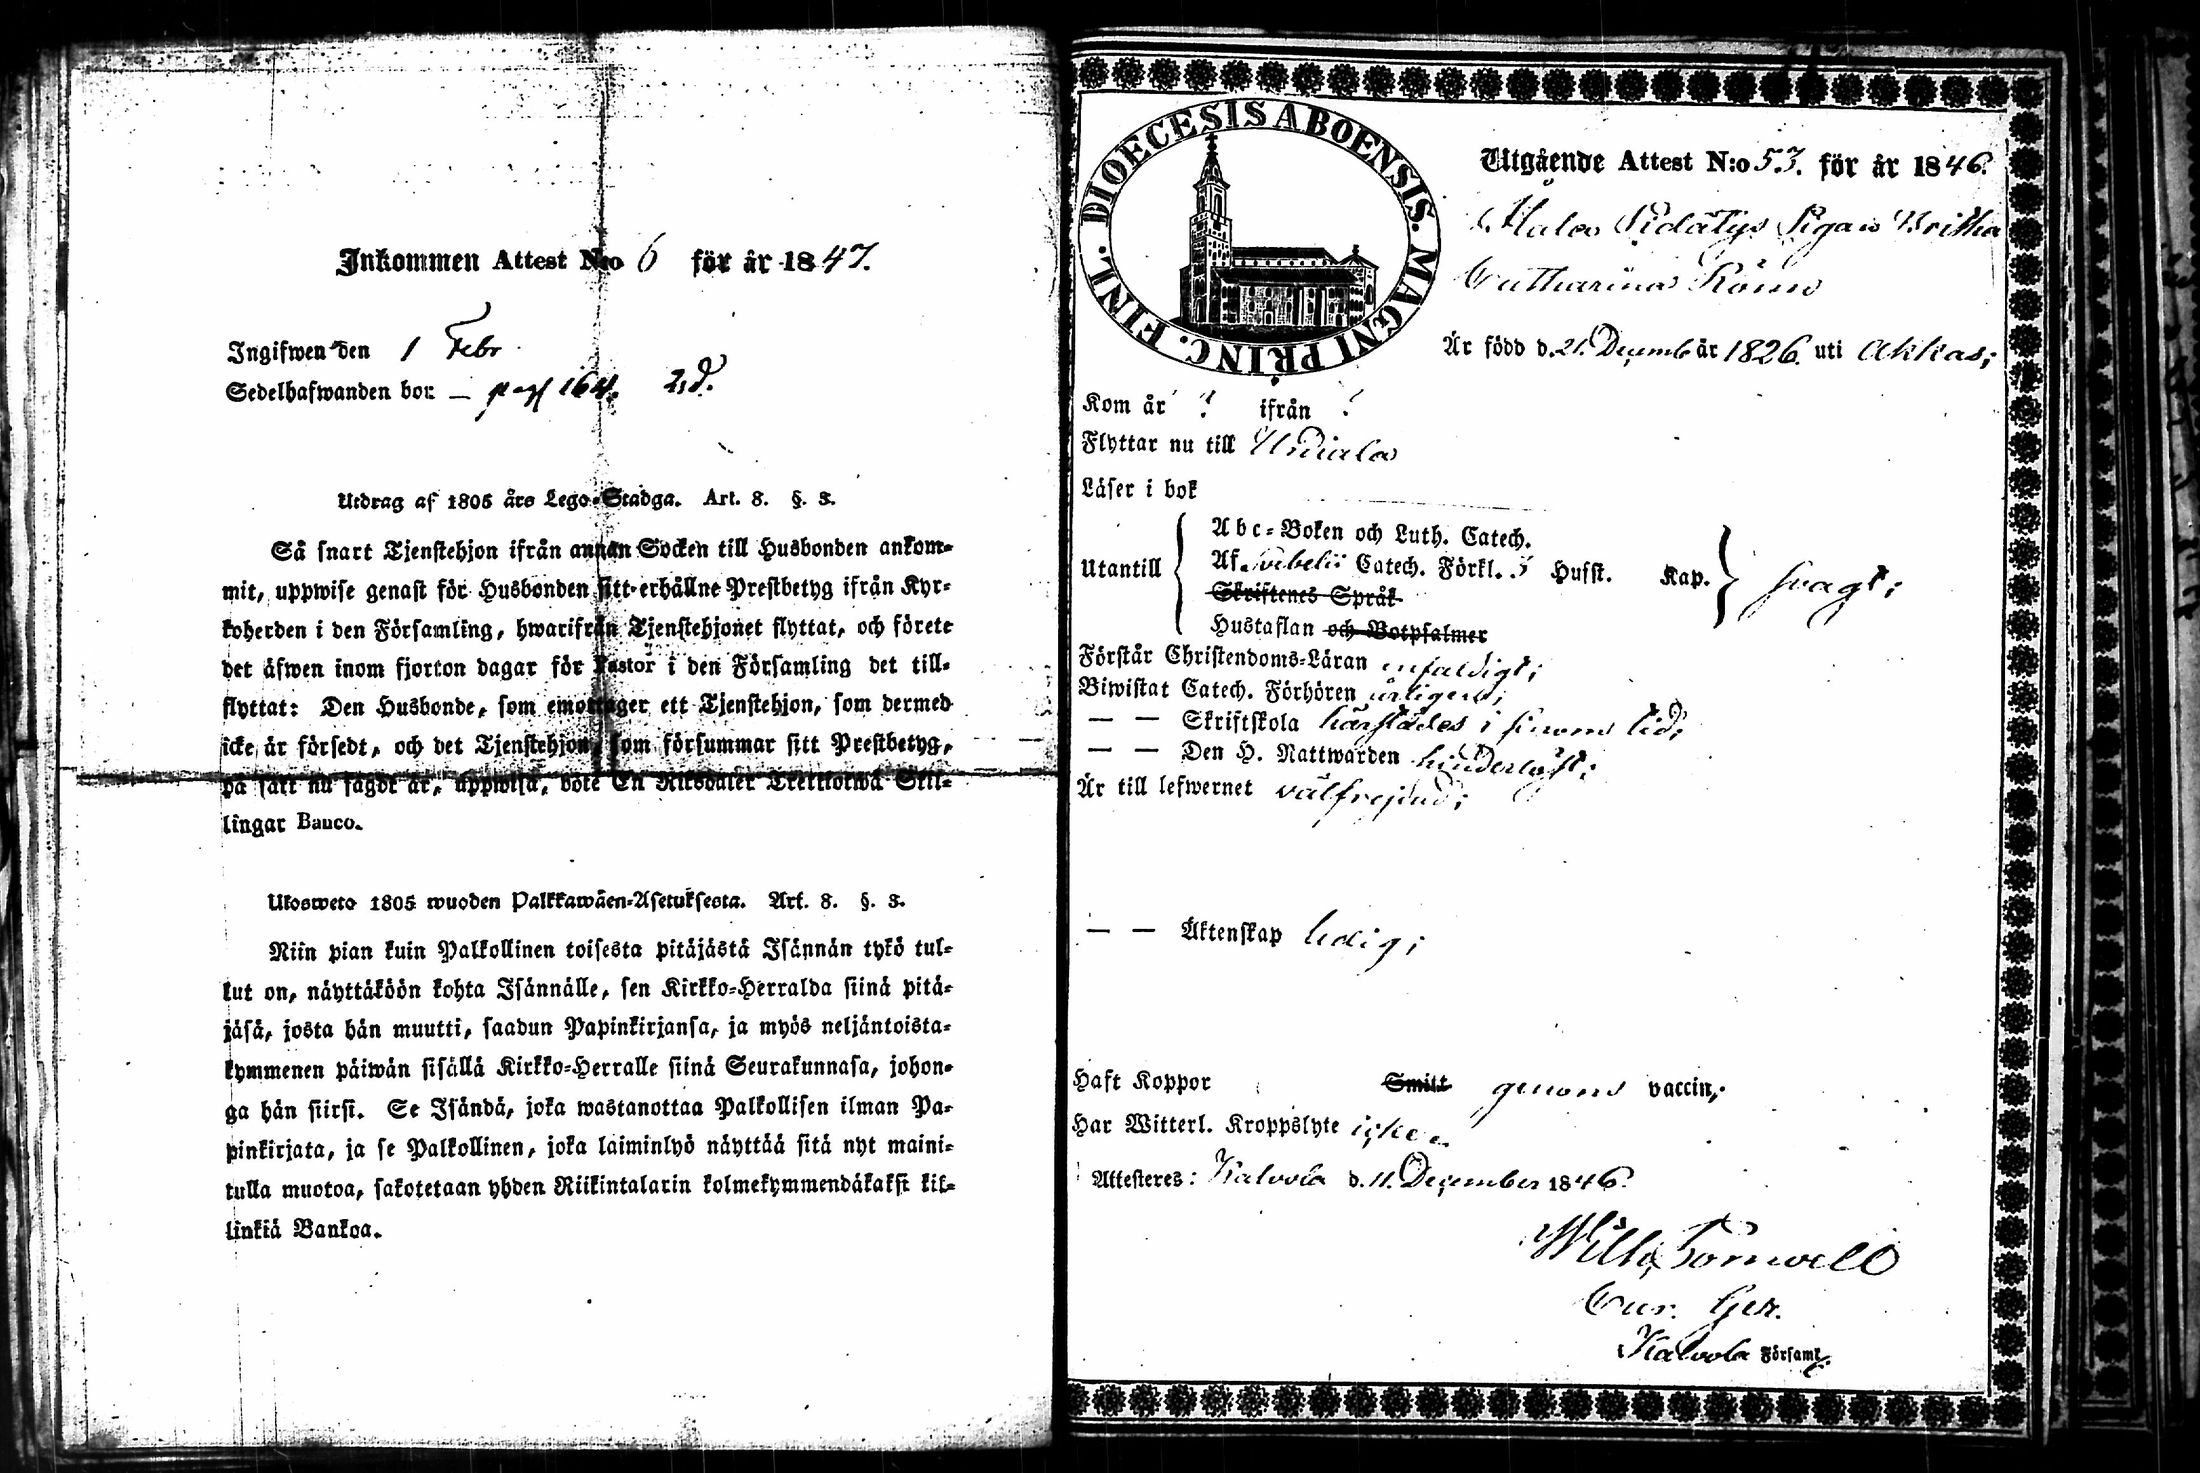 Inkommen Attest N:o 6 för år 1847.
Ingifwen den 1 Febr.
Sedelhafwanden bor — pag 164.
Utdrag af 1805 års Lego-Stadga. Art. 8. §. 3.
Så snart Tjenstehjon ifrån annan Socken till Husbonden ankom-
mit, uppwise genast för Husbonden sitt erhållne Prestbetyg ifrån Kyr-
koherden i den Församling, hwarifrån Tjenstehjonet flyttat, och förete
det äfwen inom fjorton dagar för Pastor i den Församling det till-
flyttat: Den Husbonde, som emottager ett Tjenstehjon, som dermed
icke är försedt, och det Tjenstehjon, som försummar sitt Prestbetyg,
på sätt nu sagdt är, uppwisa, böte En Riksdaler Trettiotwå Skil-
lingar Banco.
Ulosweto 1805 wuoden Palkkawäen-Asetuksesta. Art. 8. §. 3.
Niin pian kuin Palkollinen toisesta pitäjästä Isännän tykö tul-
lut on, näyttäköön kohta Isännälle, sen Kirkko-Herralda siinä pitä-
jäsä, josta hän muutti, saadun Papinkirjansa, ja myös neljäntoista-
kymmenen päiwän sisällä Kirkko-Herralle siinä Seurakunnasa, johon-
ga hän siirsi. Se Isändä, joka wastanottaa Palkollisen ilman Pa-
pinkirjata, ja se Palkollinen, joka laiminlyö näyttää sitä nyt maini-
tulla muotoa, sakotetaan yhden Riikintalarin kolmekymmendäkaksi kil-
linkiä Bankoa.
DIOECESIS ABOENSIS. MAGNI PRINC. FINL.
Utgående Attest N:o 53. för år 1846.
Pigan Britha
Catharina
Är född d. 21. Decemb år 1826. uti Akkas;
Kom år ? ifrån ?
Flyttar nu till Urdiala
Läser i bok
Utantill
Abc-Boken och Luth. Catech.
Af Svebelii Catech. Förkl. 3 Husst. Kap. svagt;
Skriftenes Språk
Hustaflan och Botpsalmer
Förstår Christendoms-Läran enfaldigt;
Biwistat Catech. Förhören årligen;
— — Skriftskola härstädes i sinom tid;
— — Den H. Nattwarden hinderlöst;
Är till lefwernet välfrejdad;
— — Äktenskap ledig;
Haft Koppor Smitt genom vaccin;
Har Witterl. Kroppslyte icke.
Attesteres: Kalvola d. 11. December 1846.
Wilh.
Kalvola Församl.